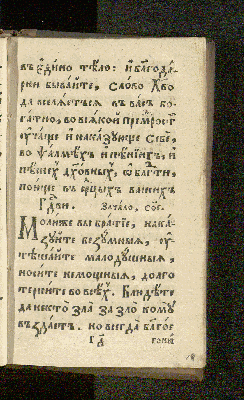 въ є҆ди́но тѣ́ло: и҆ благода́-
рни быва́йте, сло́во х҃во
да вселѧ́етьсѧ въ ва́съ бо-
га́тно, во всѧ́кой премꙋ́дрости
оу҆ча́ще и҆ накаꙁꙋ́юще себѐ,
во ѱалмѣ́хъ и҆ пѣ́нїихъ, и҆
пѣ́снехъ дх҃о́вныхъ, ѡ҆ блг҃ти,
пою́ще въ срцы́хъ ва́шихъ
гд҇ви. Зача́ло, со҃г.
Мо́лиже вы бра́тїе, нака-
ꙁꙋ́йте беꙁꙋ́мныѧ, оу҆-
тѣша́йте малодꙋ́шныѧ,
носи́те немощны́ѧ, долго
терпи́те во всѣ́хъ. Блюдѣ́те
да никто̀ ꙁла̀ ꙁа ꙁло̀ комꙋ̀
въꙁда́стъ. но всегда̀ благо́е
гони́